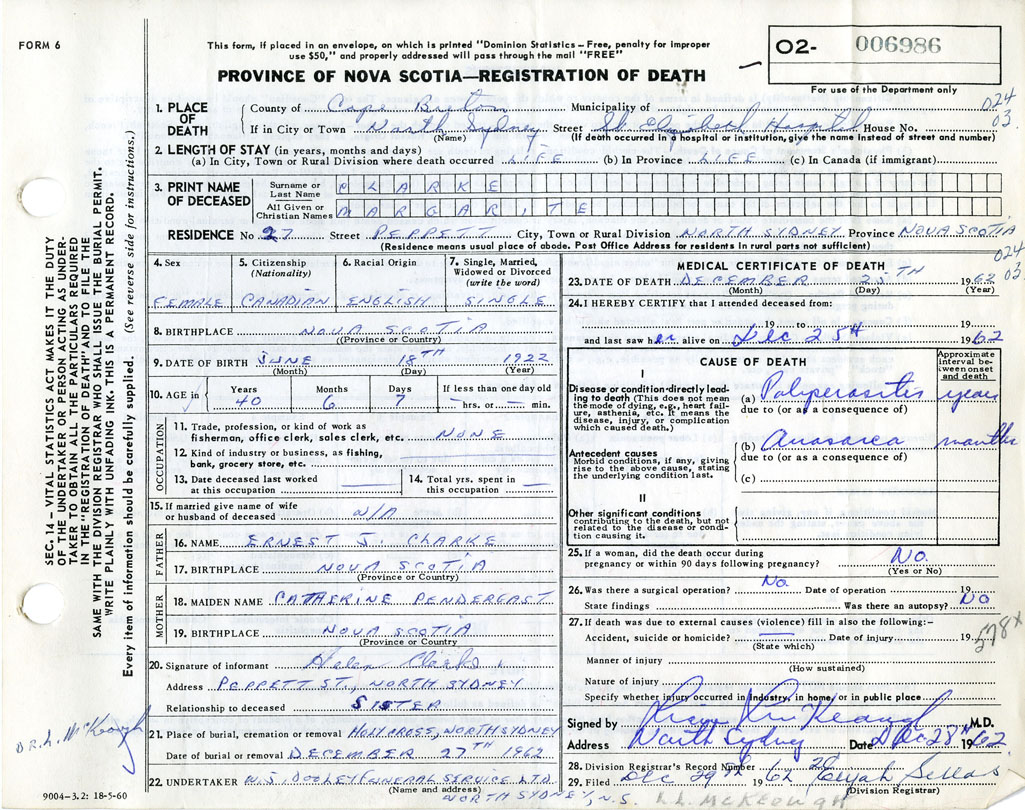 FORM 6
This form, if placed in an envelope, on which is printed "Dominion Statistics – Free, penalty for improper
use $50," and properly addressed will pass through the mail "FREE"
O2- 006986
For use of the Department only
PROVINCE OF NOVA SCOTIA—REGISTRATION OF DEATH
1. PLACE OF DEATH
County of Cape Breton Municipality of
If in City or Town North Sydney Street St. Elizabeth Hospital House No.
(Name) (If death occurred in a hospital or institution, give the name instead of street and number)
024
03.
2. LENGTH OF STAY (in years, months and days)
(a) In City, Town or Rural Division where death occurred LIFE (b) In Province LIFE (c) In Canada (if immigrant)
3. PRINT NAME OF DECEASED
Surname or Last Name CLARKE
All Given or Christian Names MARGARITE
RESIDENCE No. 27 Street PEPPETT City, Town or Rural Division NORTH SYDNEY Province NOVA SCOTIA
(Residence means usual place of abode. Post Office Address for residents in rural parts not sufficient)
024
03
4. Sex FEMALE
5. Citizenship (Nationality) CANADIAN
6. Racial Origin ENGLISH
7. Single, Married, Widowed or Divorced (write the word) SINGLE
8. BIRTHPLACE NOVA SCOTIA
(Province or Country)
9. DATE OF BIRTH JUNE 18TH 1922
(Month) (Day) (Year)
10. AGE in Years 40 Months 6 Days 7 If less than one day old — hrs. or — min.
OCCUPATION
11. Trade, profession, or kind of work as
fisherman, office clerk, sales clerk, etc. NONE
12. Kind of industry or business, as fishing,
bank, grocery store, etc.
13. Date deceased last worked
at this occupation
14. Total yrs. spent in
this occupation
15. If married give name of wife
or husband of deceased N/A
FATHER
16. NAME ERNEST J. CLARKE
17. BIRTHPLACE NOVA SCOTIA
(Province or Country)
MOTHER
18. MAIDEN NAME CATHERINE PENDERGAST
19. BIRTHPLACE NOVA SCOTIA
(Province or Country
20. Signature of informant Helen Clarke
Address PEPPETT ST., NORTH SYDNEY
Relationship to deceased SISTER
21. Place of burial, cremation or removal HOLY CROSS, NORTH SYDNEY
Date of burial or removal DECEMBER 27TH 1962
22. UNDERTAKER W.S. DOOLEY FUNERAL SERVICE LTD.
(Name and address)
NORTH SYDNEY, N.S.
MEDICAL CERTIFICATE OF DEATH
23. DATE OF DEATH DECEMBER 25TH 1962
(Month) (Day) (Year)
24. I HEREBY CERTIFY that I attended deceased from:
19 to 19
and last saw her alive on Dec 25th 1962
CAUSE OF DEATH
Approximate interval between onset and death
I
Disease or condition directly leading to death (This does not mean the mode of dying, e.g., heart failure, asthenia, etc. It means the disease, injury, or complication which caused death.)
(a) Polyserositis years
due to (or as a consequence of)
Antecedent causes
Morbid conditions, if any, giving rise to the above cause, stating the underlying condition last.
(b) Anasarca months
due to (or as a consequence of)
(c)
II
Other significant conditions
contributing to the death, but not related to the disease or condition causing it.
25. If a woman, did the death occur during
pregnancy or within 90 days following pregnancy? No.
(Yes or No)
26. Was there a surgical operation? No. Date of operation 19
State findings Was there an autopsy? No
27. If death was due to external causes (violence) fill in also the following:-
Accident, suicide or homicide? — Date of injury 19
(State which)
578x
Manner of injury
(How sustained)
Nature of injury
Specify whether injury occurred in industry, in home, or in public place
Signed by McKeough M.D.
Address North Sydney Date Dec 28th 1962
28. Division Registrar's Record Number
29. Filed Dec 29th 1962 Elijah
(Division Registrar)
L.L. McKEOUGH
SEC. 14 – VITAL STATISTICS ACT MAKES IT THE DUTY
OF THE UNDERTAKER OR PERSON ACTING AS UNDER-
TAKER TO OBTAIN ALL THE PARTICULARS REQUIRED
IN THE "REGISTRATION OF DEATH" AND TO FILE THE
SAME WITH THE DIVISION REGISTRAR WHO SHALL ISSUE THE BURIAL PERMIT.
WRITE PLAINLY WITH UNFADING INK. THIS IS A PERMANENT RECORD.
Every item of information should be carefully supplied. (See reverse side for instructions.)
DR. L. McKeough
9004–3.2: 18-5-60